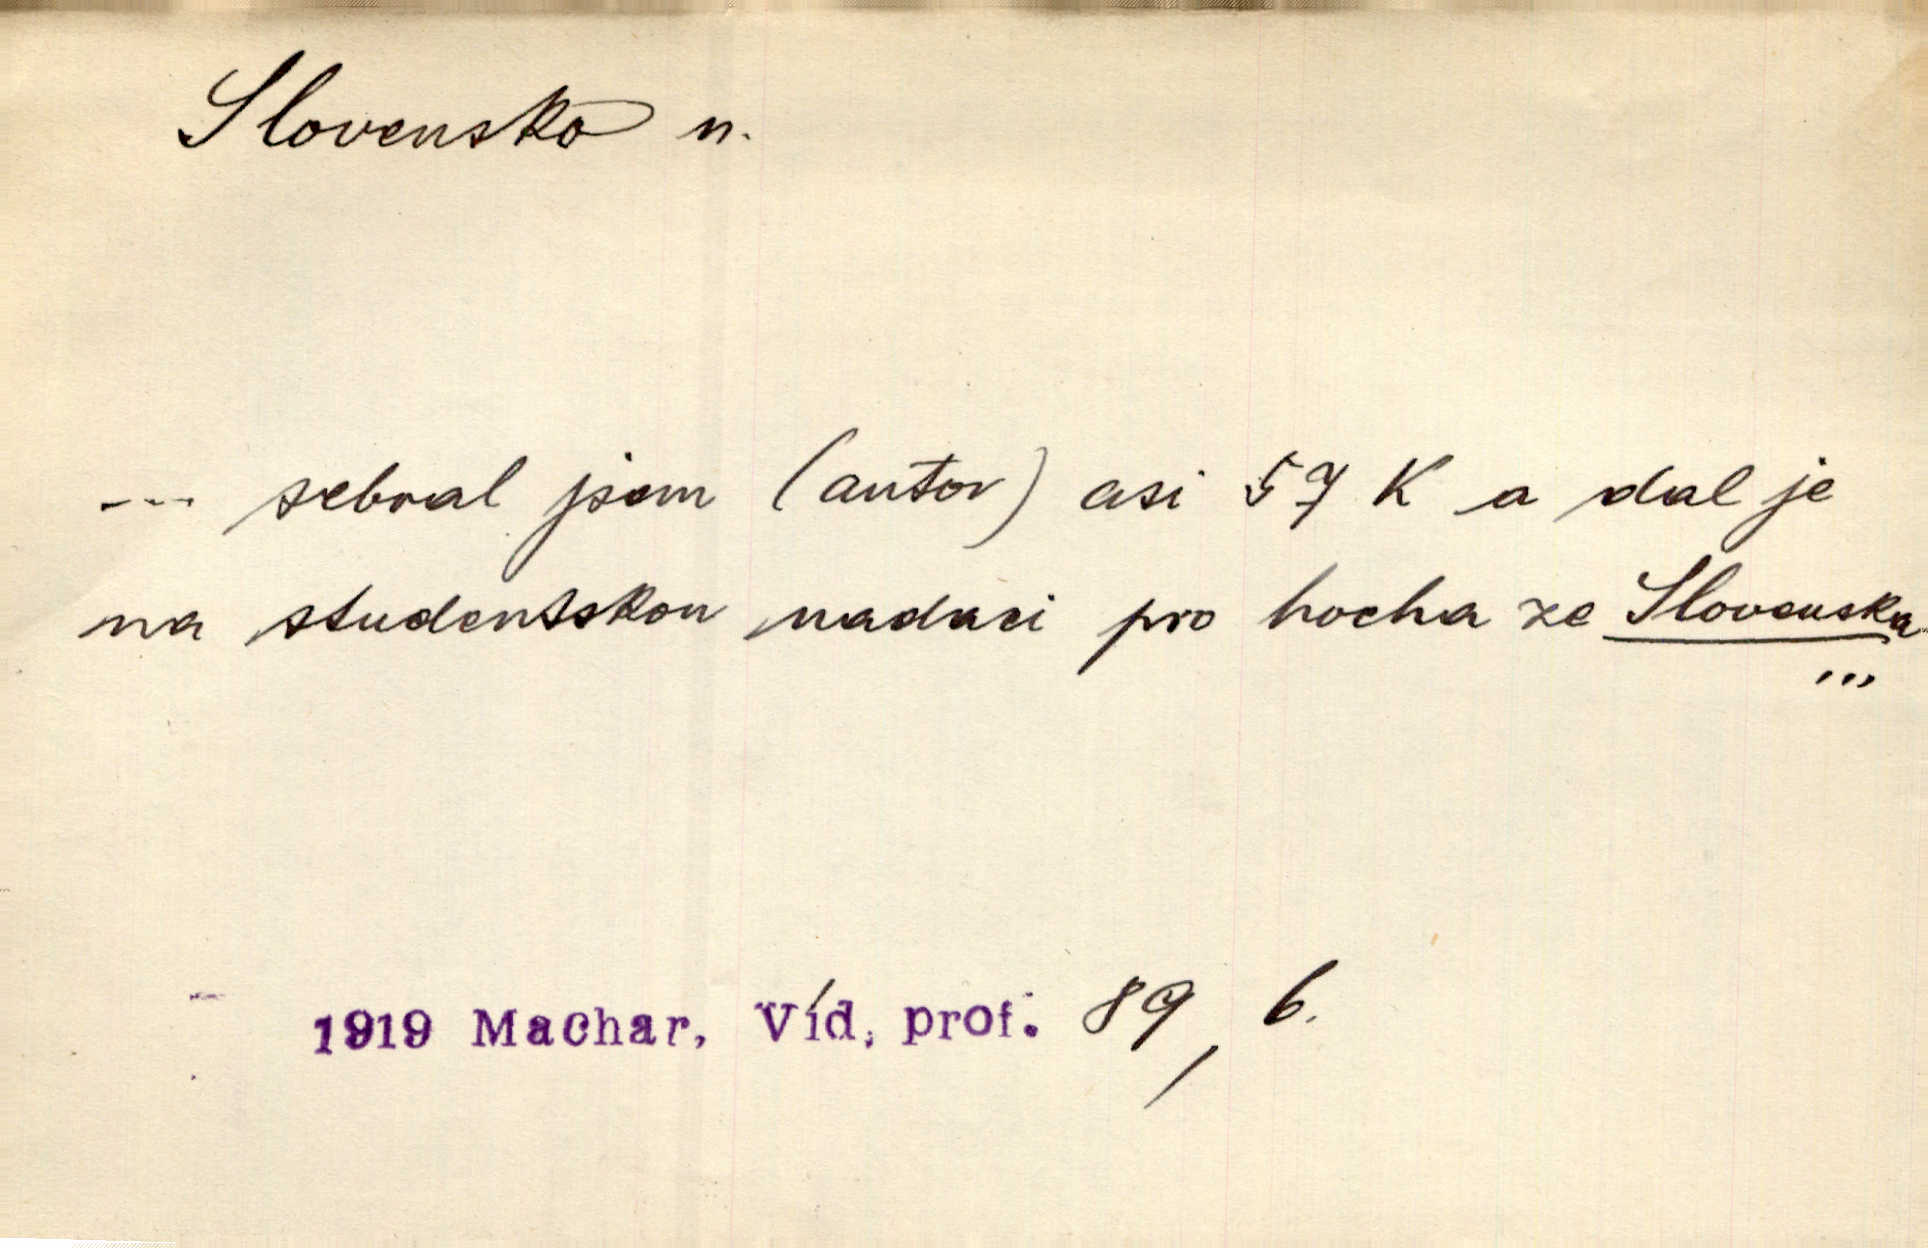 Slovensko n.
--- sebral jsem (autor) asi 57 K a dal je
na studentskou nadaci pro hocha ze Slovenska
...
1919 Machar, Víd. prof. 89, 6.